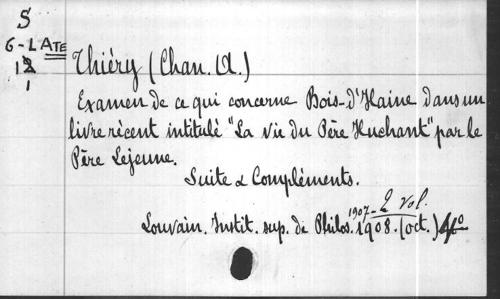 S
6-LATE
12
1
Thiéry (Chan. A.)
Examen de ce qui concerne Bois-d'Haine dans un
livre récent intitulé "La vie du Père Huchant" par le
Père Lejeune.
Suite & Compléments.
1907- 2 vol.
Louvain. Instit. sup. de Philos. 1908. (oct.) 4o